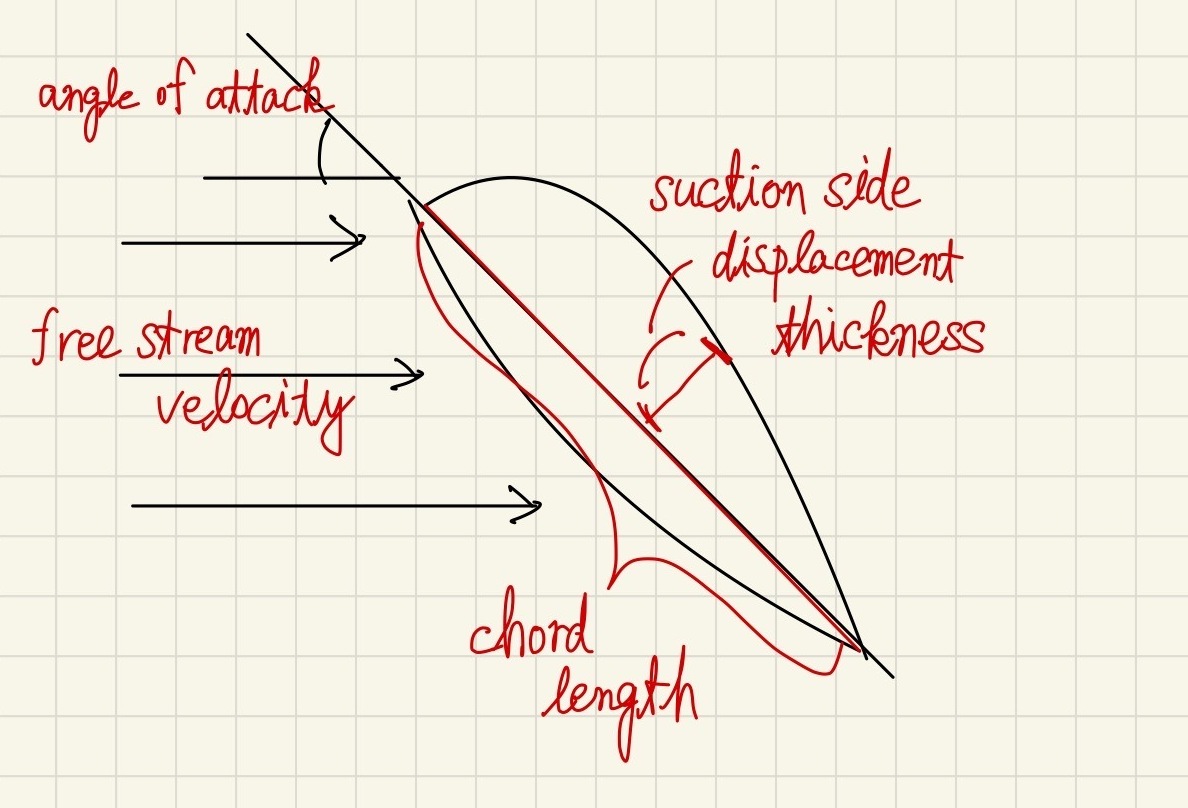 angle of attack
suction side
displacement
thickness
free stream
velocity
chord
length